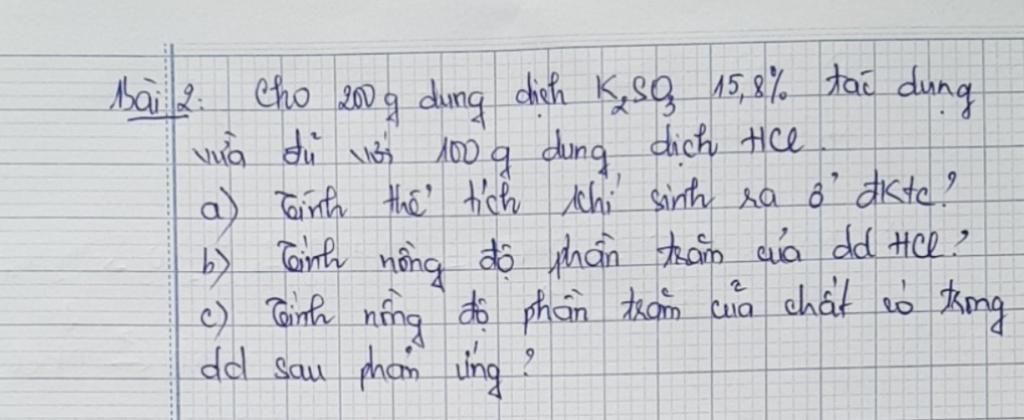 Bài 2: Cho 200 g dung dịch K₂SO₃ 15,8% tác dụng
vừa đủ với 100 g dung dịch HCl.
a) Tính thể tích khí sinh ra ở đktc?
b) Tính nồng độ phần trăm của dd HCl?
c) Tính nồng độ phần trăm của chất có trong
dd sau phản ứng?